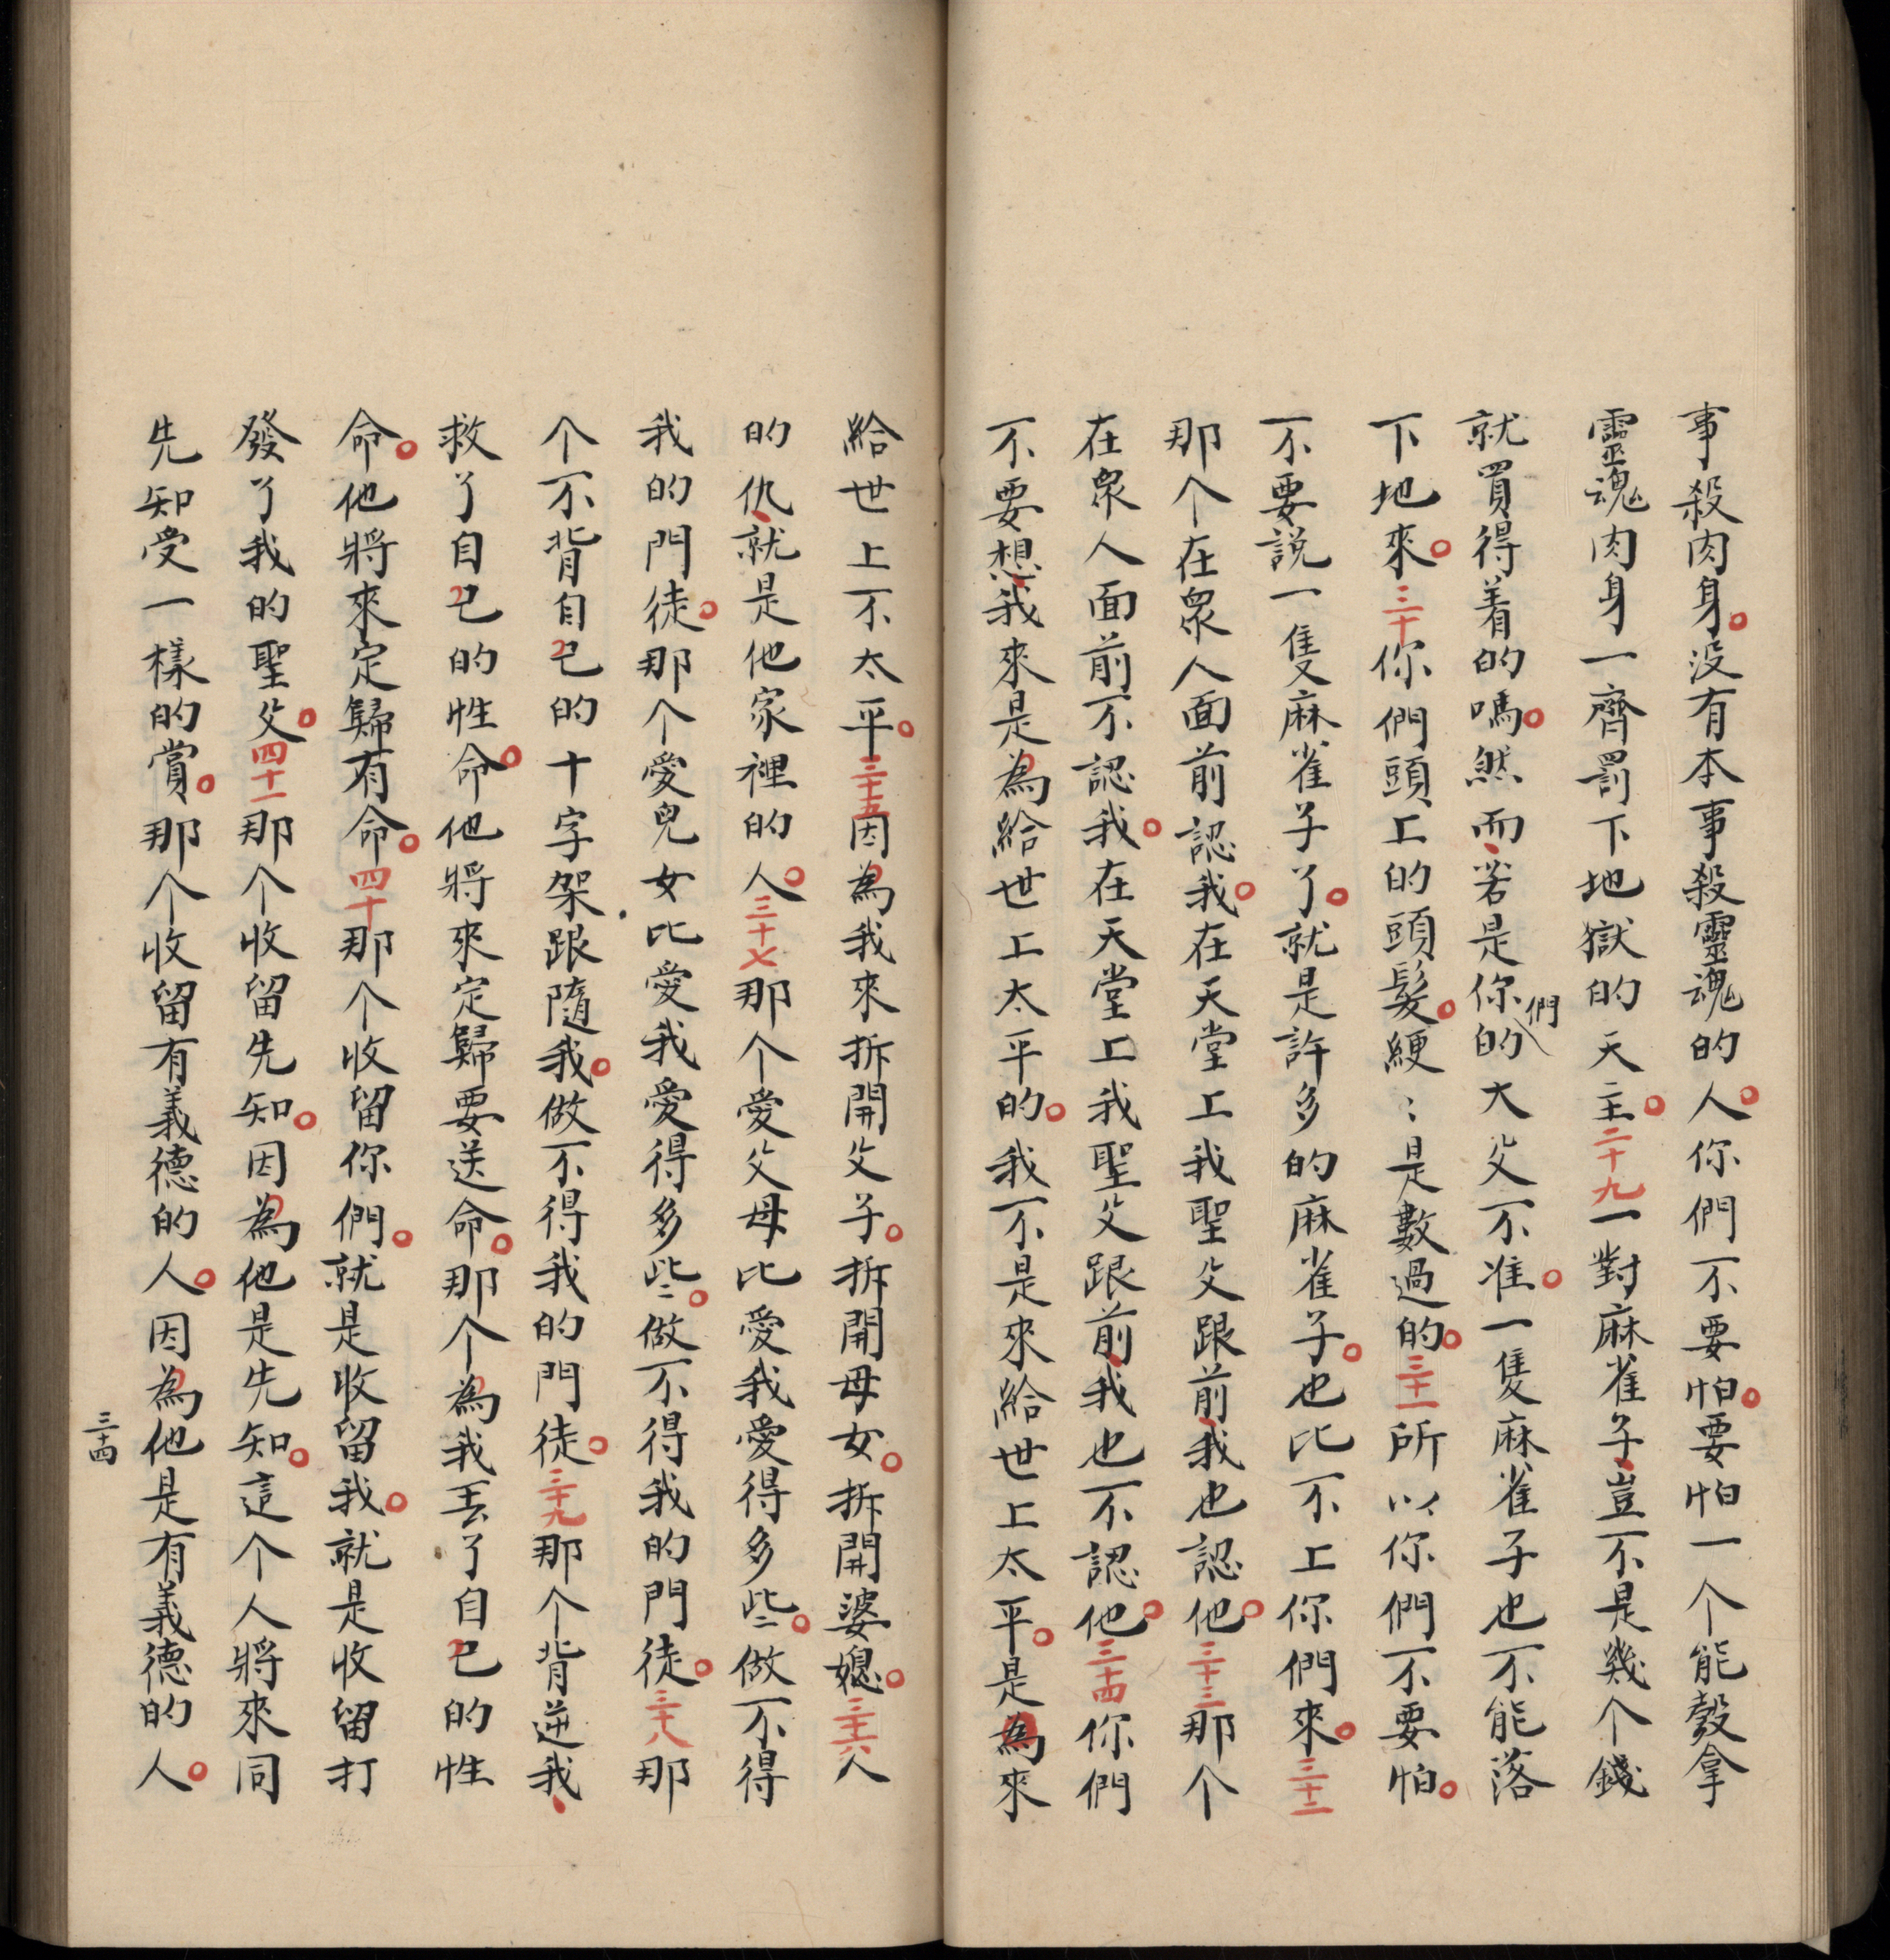 事殺肉身。没有本事殺靈魂的人。你們不要怕。要怕一个能彀拿
靈魂肉身一齊罰下地獄的天主。二十九一對麻雀子、豈不是幾个錢
就買得着的嗎。然而、若是你們的大父不准。一隻麻雀子也不能落
下地來。三十你們頭上的頭髮。綆〻是數過的。三十一所以你們不要怕。
不要説一隻麻雀子了。就是許多的麻雀子。也比不上你們來。三十二
那个在衆人面前認我。在天堂上我聖父跟前、我也認他。三十三那个
在衆人面前不認我。在天堂上我聖父跟前、我也不認他。三十四你們
不要想、我來是為給世上太平的。我不是來給世上太平。是為來
給世上不太平。三十五因為我來拆開父子。拆開母女。拆開婆媳。三十六人
的仇、就是他家裡的人。三十七那个愛父母比愛我愛得多些。做不得
我的門徒。那个愛兒女比愛我愛得多些。做不得我的門徒。三十八那
个不背自己的十字架跟隨我。做不得我的門徒。三十九那个背逆我、
救了自己的性命。他將來定歸要送命。那个為我丟了自己的性
命。他將來定歸有命。四十那个收留你們。就是收留我。就是收留打
發了我的聖父。四十一那个收留先知。因為他是先知。這个人將來同
先知受一樣的賞。那个收留有義德的人。因為他是有義德的人。
三十四